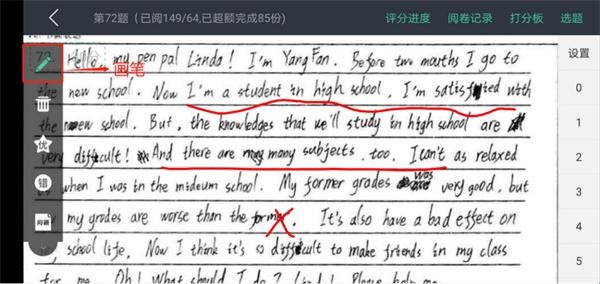 第72题(已阅149/64,已超额完成85份)
评分进度 阅卷记录 打分板 选题
画笔
Hello, my pen pal Linda! I'm Yang Fan. Before two mouths I go to
the new school. Now I'm a student in high school, I'm satisfied with
the new school. But, the knowledges that we'll study in high school are
very difficult! And there are many subjects, too. I can't as relaxed
when I was in the mideum school. My former grades was very good, but
my grades are worse than the former. It's also have a bad effect on
school life. Now I think it's so difficult to make friends in my class
for me. Oh! What should I do? Please help me
优
错
问题
设置
0
1
2
3
4
5